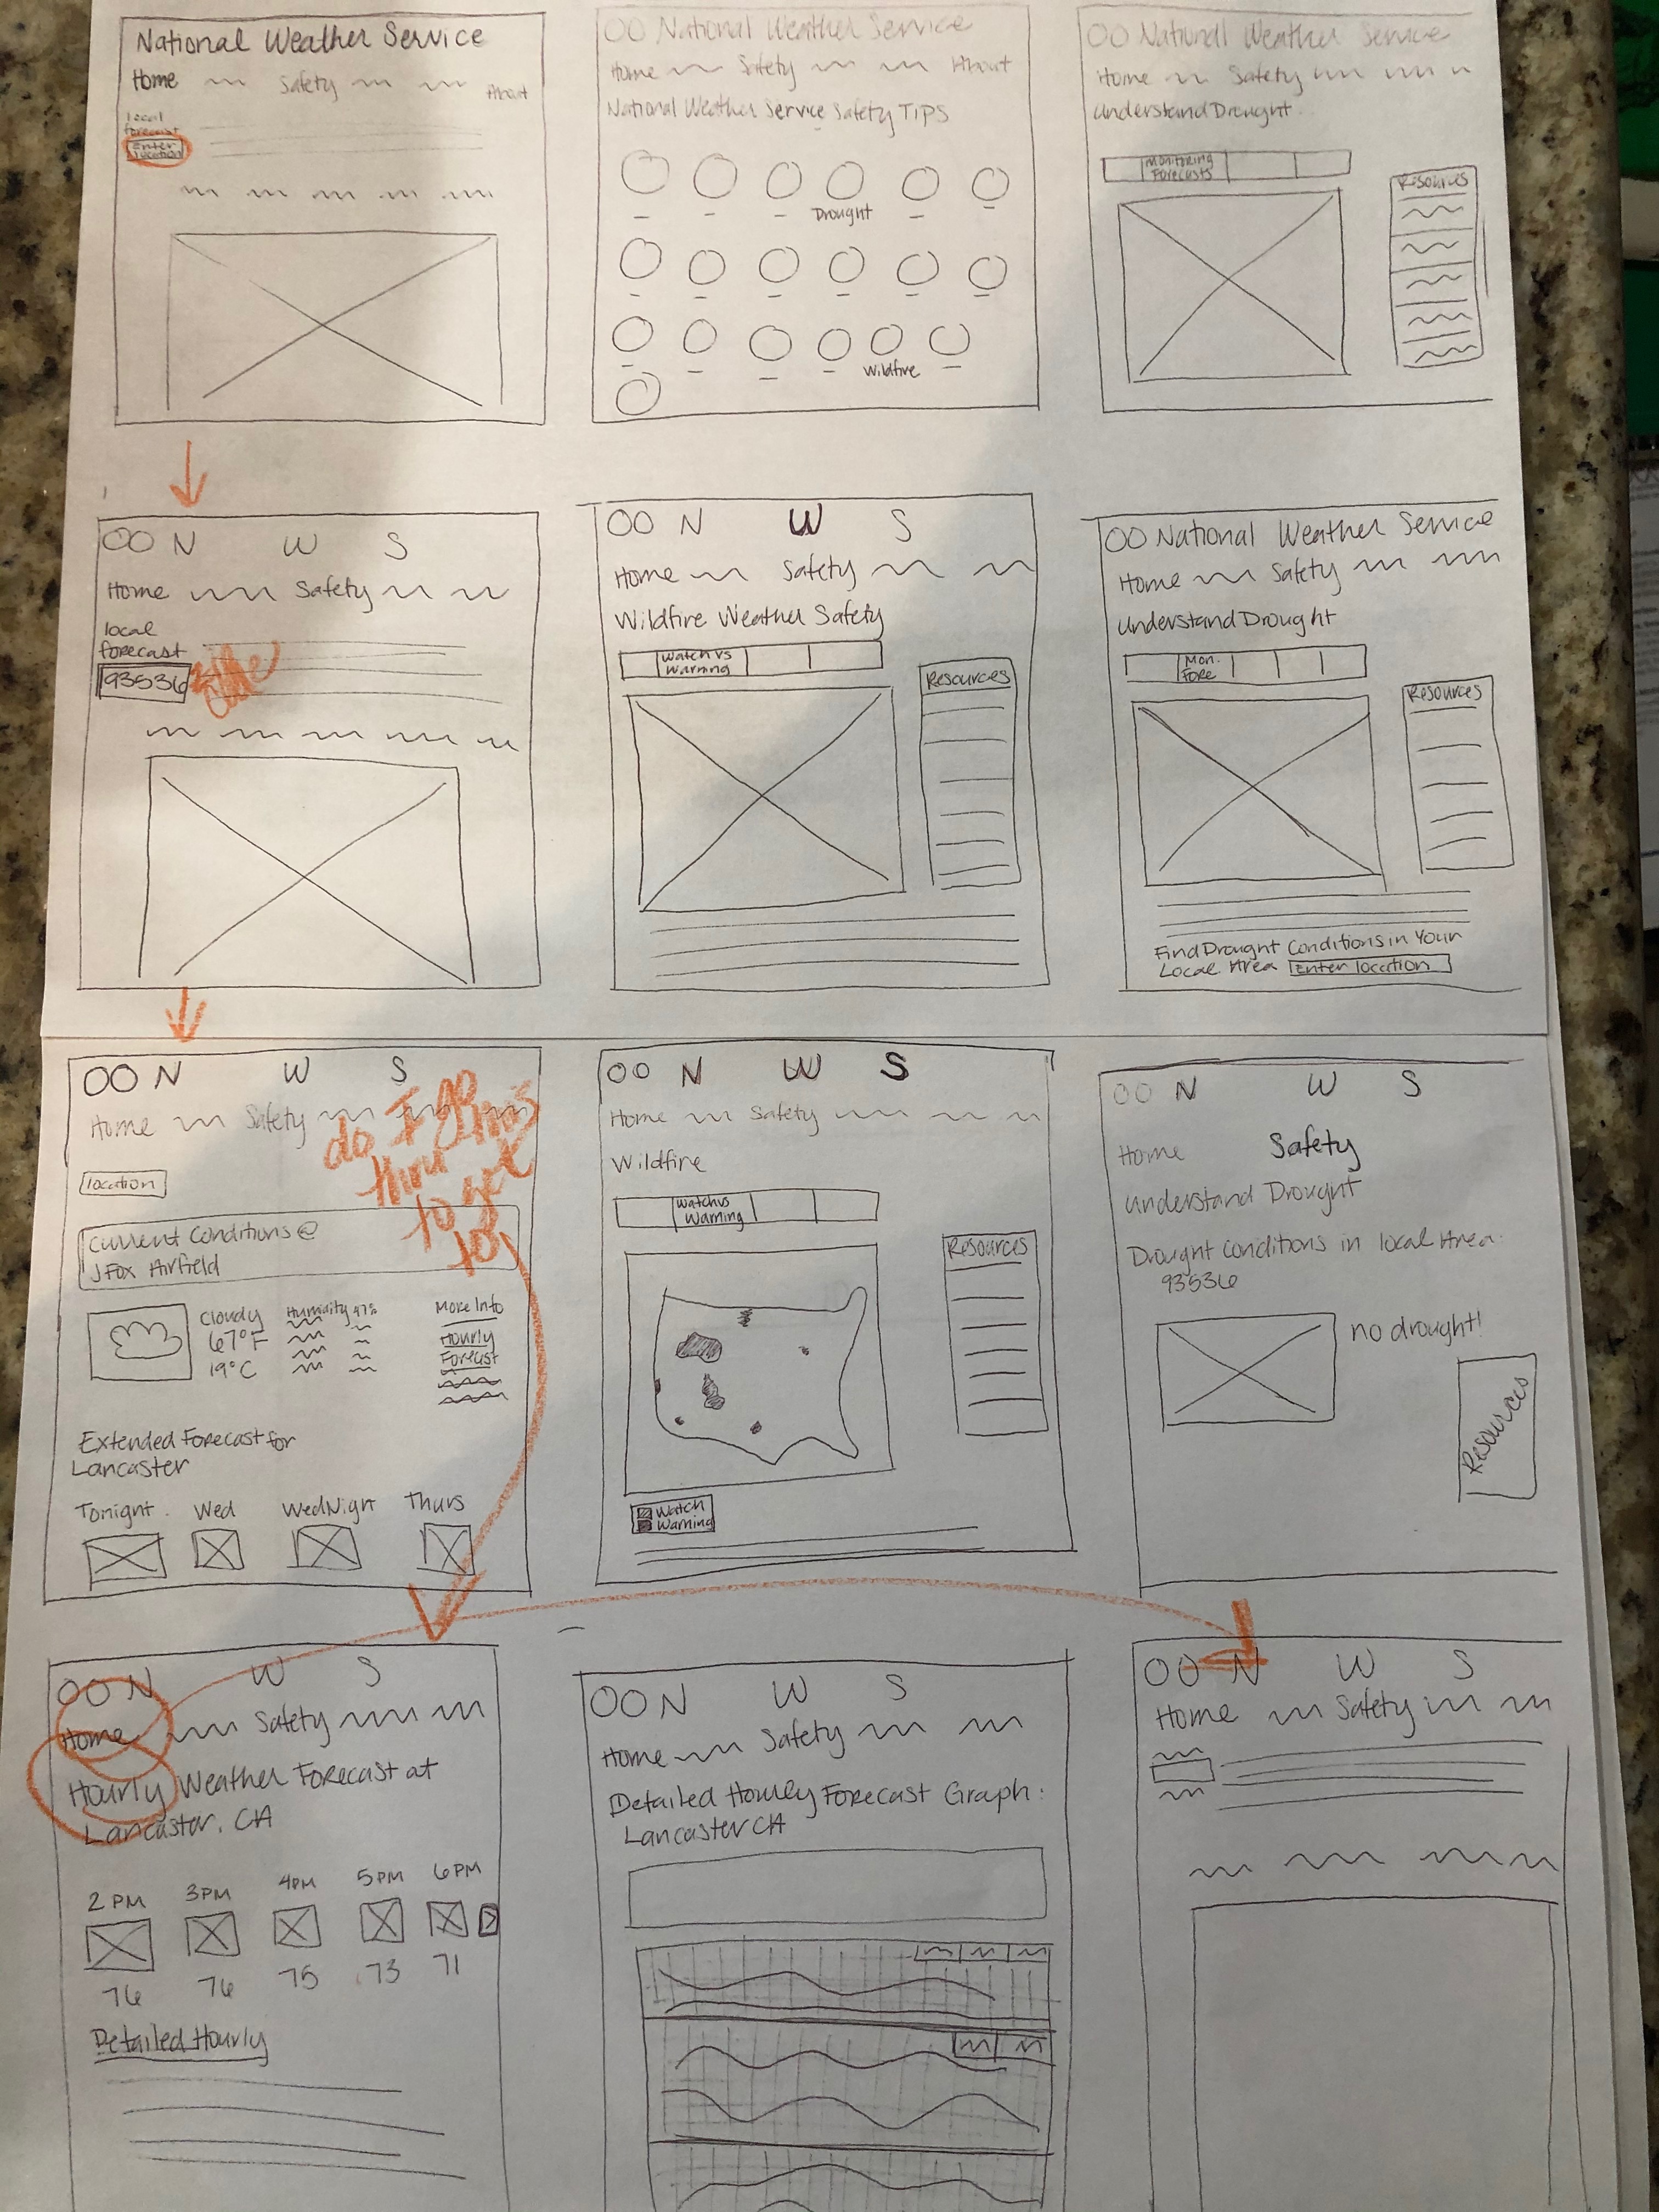 National Weather Service
Home Safety About
local
forecast
Enter
location
OO National Weather Service
Home Safety About
National Weather Service Safety Tips
Drought
Wildfire
OO National Weather Service
Home Safety
Understand Drought
Monitoring
Forecasts
Resources
OO N W S
Home Safety
local
forecast
93536
OO N W S
Home Safety
Wildfire Weather Safety
Watch vs
Warning
Resources
OO National Weather Service
Home Safety
Understand Drought
Mon.
Fore
Resources
Find Drought Conditions in Your
Local Area Enter location
OO N W S
Home Safety
do I go
thru this
to get
to
location
Current Conditions @
J Fox Airfield
Cloudy
67°F
19°C
Humidity 47%
More Info
Hourly
Forecast
Extended Forecast for
Lancaster
Tonight Wed Wed Night Thurs
OO N W S
Home Safety
Wildfire
Watch vs
Warning
Resources
Watch
Warning
OO N W S
Home Safety
Understand Drought
Drought Conditions in local Area:
93536
no drought!
Resources
OO N W S
Home Safety
Hourly Weather Forecast at
Lancaster, CA
2 PM 3PM 4PM 5PM 6PM
76 76 75 73 71
Detailed Hourly
OO N W S
Home Safety
Detailed Hourly Forecast Graph:
Lancaster CA
OO N W S
Home Safety